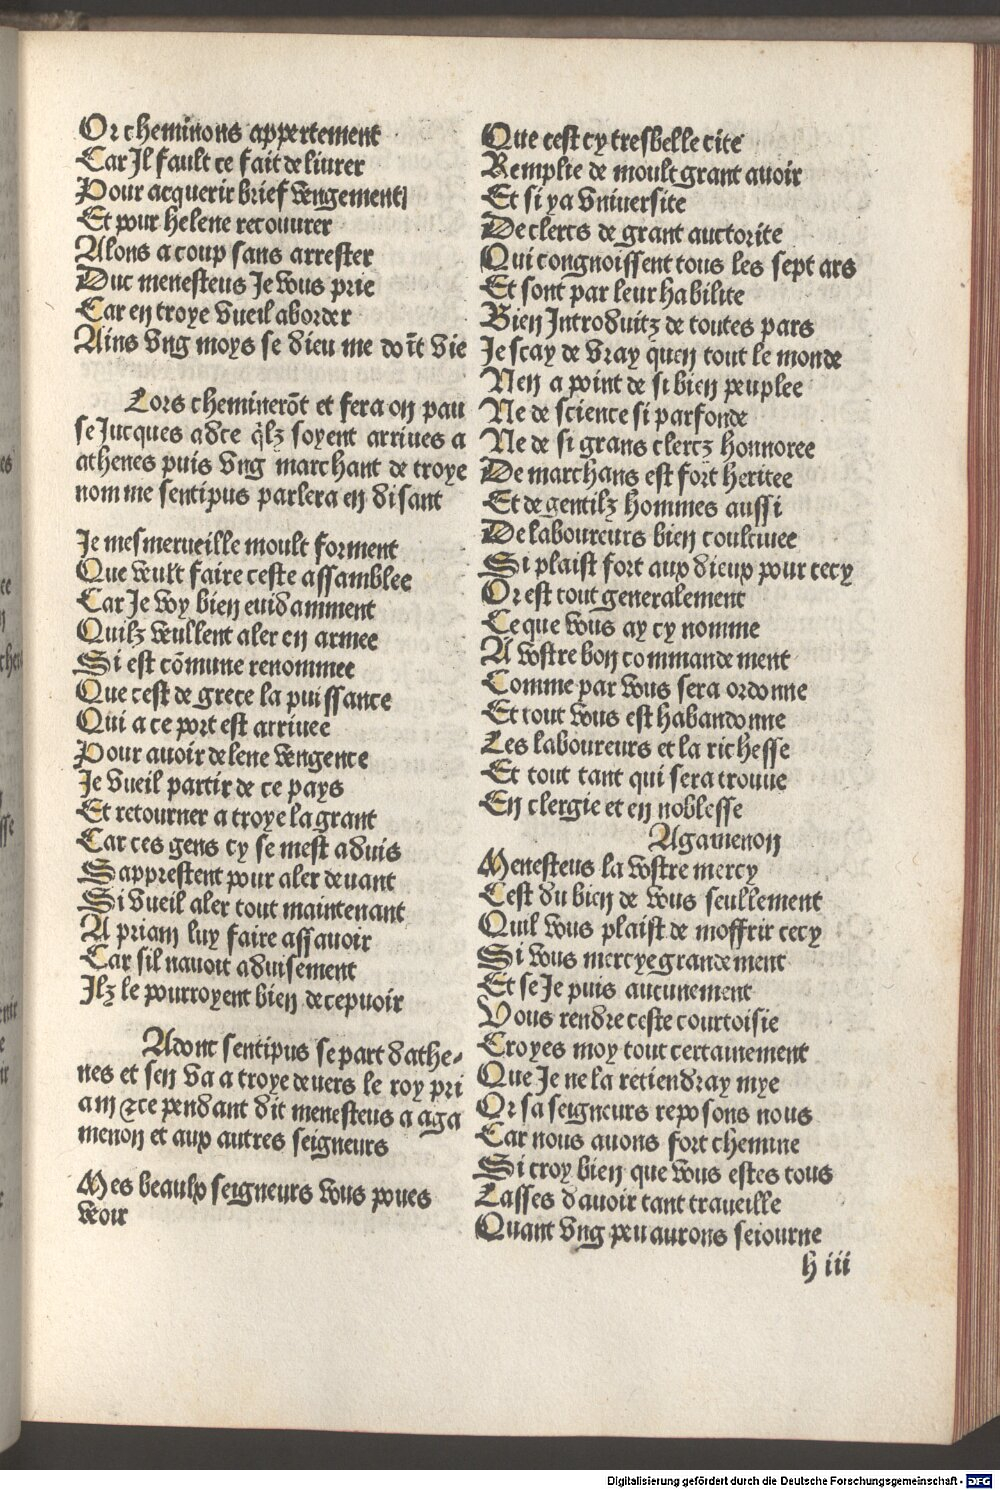 Or cheminons appertement
Car Il fault ce fait deliurer
Pour acquerir brief vengement
Et pour helene recouurer
Alons a coup sans arrester
Duc menesteus Je vous prie
Car en troye vueil aborder
Ains vng moys se dieu me dōīt vie
Lors cheminerōt et fera on pau
se Jucques adce q̄lz soyent arriues a
athenes puis vng marchant de troye
nomme sentipus parlera en disant
Je mesmerueille moult forment
Que veult faire ceste assamblee
Car Je voy bien euidamment
Quilz veullent aler en armee
Si est cōmune renommee
Que cest de grece la puissance
Qui a ce port est arriuee
Pour auoir delene vengence
Je vueil partir de ce pays
Et retourner a troye la grant
Car ces gens cy se mest aduis
Sapprestent pour aler deuant
Si vueil aler tout maintenant
A priam luy faire assauoir
Car sil nauoit aduisement
Ilz le pourroyent bien decepuoir
Adont sentipus se part dathe-
nes et sen va a troye deuers le roy pri
am ⁊ce pendant dit menesteus a aga
menon et aux autres seigneurs
Mes beaulx seigneurs vous poues
veoir
Que cest cy tresbelle cite
Remplie de moult grant auoir
Et si ya vniuersite
De clercs de grant auctorite
Qui congnoissent tous les sept ars
Et sont par leur habilite
Bien Introduitz de toutes pars
Je scay de vray quen tout le monde
Nen a point de si bien peuplee
Ne de science si parfonde
Ne de si grans clercz honnoree
De marchans est fort heritee
Et de gentilz hommes aussi
De laboureurs bien coulciuee
Si plaist fort aux dieux pour cecy
Or est tout generalement
Ce que vous ay cy nomme
A vostre bon commandement
Comme par vous sera ordonne
Et tout vous est habandonne
Les laboureurs et la richesse
Et tout tant qui sera trouue
En clergie et en noblesse
Agamenon
Menesteus la vostre mercy
Cest du bien de vous seullement
Quil vous plaist de moffrir cecy
Si vous mercye grandement
Et se Je puis aucunement
Vous rendre ceste courtoisie
Croyes moy tout certainement
Que Je ne la retiendray mye
Or sa seigneurs reposons nous
Car nous auons fort chemine
Si croy bien que vous estes tous
Lasses dauoir tant traueille
Quant vng peu aurons seiourne
h iii
Digitalisierung gefördert durch die Deutsche Forschungsgemeinschaft - DFG